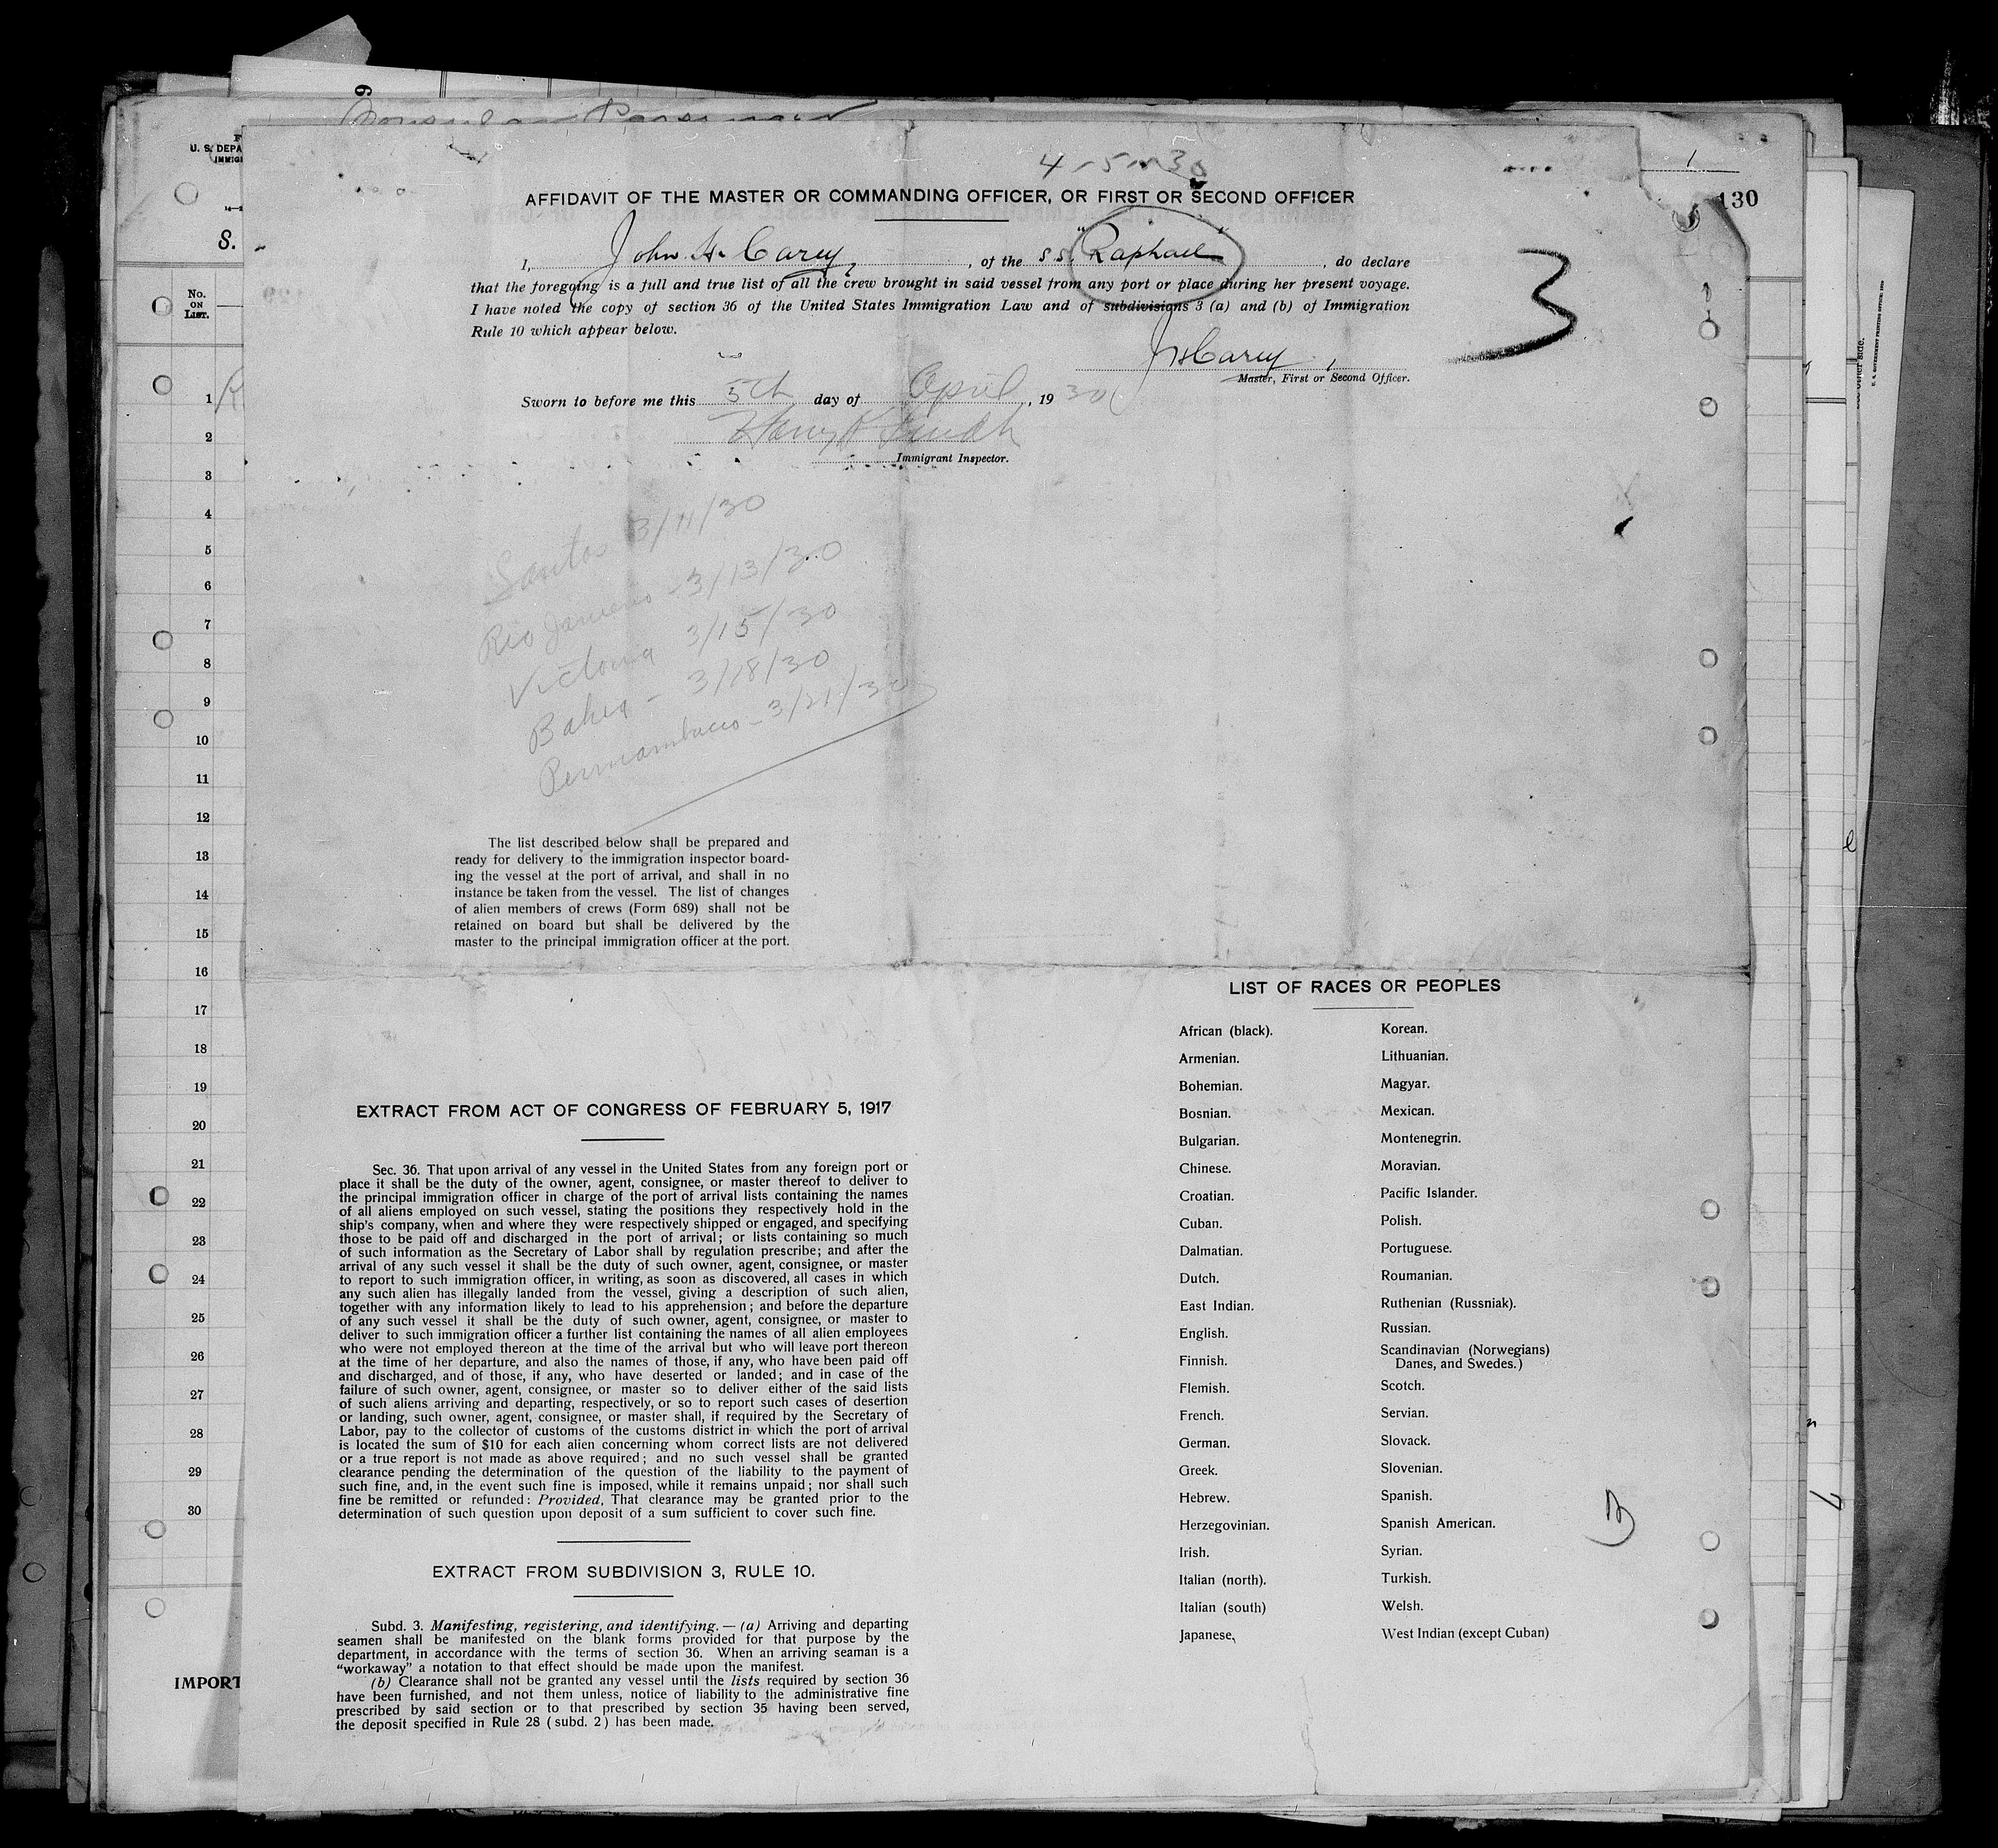 6
U. S. DEPA
IMMIG
S.
No.
ON
LIST.
1
2
3
4
5
6
7
8
9
10
11
12
13
14
15
16
17
18
19
20
21
22
23
24
25
26
27
28
29
30
IMPORT
4-5-30
130
AFFIDAVIT OF THE MASTER OR COMMANDING OFFICER, OR FIRST OR SECOND OFFICER
I, John H. Carey, of the S.S. "Raphael", do declare
that the foregoing is a full and true list of all the crew brought in said vessel from any port or place during her present voyage.
I have noted the copy of section 36 of the United States Immigration Law and of subdivisions 3 (a) and (b) of Immigration
Rule 10 which appear below.
3
JHCarey
Master, First or Second Officer.
Sworn to before me this 5th day of April, 1930
Harry
Immigrant Inspector.
Santos 3/11/30
Rio Janeiro - 3/13/30
Victoria 3/15/30
Bahia - 3/18/30
Pernambuco - 3/21/30
The list described below shall be prepared and
ready for delivery to the immigration inspector board-
ing the vessel at the port of arrival, and shall in no
instance be taken from the vessel. The list of changes
of alien members of crews (Form 689) shall not be
retained on board but shall be delivered by the
master to the principal immigration officer at the port.
EXTRACT FROM ACT OF CONGRESS OF FEBRUARY 5, 1917
Sec. 36. That upon arrival of any vessel in the United States from any foreign port or
place it shall be the duty of the owner, agent, consignee, or master thereof to deliver to
the principal immigration officer in charge of the port of arrival lists containing the names
of all aliens employed on such vessel, stating the positions they respectively hold in the
ship's company, when and where they were respectively shipped or engaged, and specifying
those to be paid off and discharged in the port of arrival; or lists containing so much
of such information as the Secretary of Labor shall by regulation prescribe; and after the
arrival of any such vessel it shall be the duty of such owner, agent, consignee, or master
to report to such immigration officer, in writing, as soon as discovered, all cases in which
any such alien has illegally landed from the vessel, giving a description of such alien,
together with any information likely to lead to his apprehension; and before the departure
of any such vessel it shall be the duty of such owner, agent, consignee, or master to
deliver to such immigration officer a further list containing the names of all alien employees
who were not employed thereon at the time of the arrival but who will leave port thereon
at the time of her departure, and also the names of those, if any, who have been paid off
and discharged, and of those, if any, who have deserted or landed; and in case of the
failure of such owner, agent, consignee, or master so to deliver either of the said lists
of such aliens arriving and departing, respectively, or so to report such cases of desertion
or landing, such owner, agent, consignee, or master shall, if required by the Secretary of
Labor, pay to the collector of customs of the customs district in which the port of arrival
is located the sum of $10 for each alien concerning whom correct lists are not delivered
or a true report is not made as above required; and no such vessel shall be granted
clearance pending the determination of the question of the liability to the payment of
such fine, and, in the event such fine is imposed, while it remains unpaid; nor shall such
fine be remitted or refunded: Provided, That clearance may be granted prior to the
determination of such question upon deposit of a sum sufficient to cover such fine.
EXTRACT FROM SUBDIVISION 3, RULE 10.
Subd. 3. Manifesting, registering, and identifying.—(a) Arriving and departing
seamen shall be manifested on the blank forms provided for that purpose by the
department, in accordance with the terms of section 36. When an arriving seaman is a
"workaway" a notation to that effect should be made upon the manifest.
(b) Clearance shall not be granted any vessel until the lists required by section 36
have been furnished, and not them unless, notice of liability to the administrative fine
prescribed by said section or to that prescribed by section 35 having been served,
the deposit specified in Rule 28 (subd. 2) has been made.
LIST OF RACES OR PEOPLES
African (black).
Armenian.
Bohemian.
Bosnian.
Bulgarian.
Chinese.
Croatian.
Cuban.
Dalmatian.
Dutch.
East Indian.
English.
Finnish.
Flemish.
French.
German.
Greek.
Hebrew.
Herzegovinian.
Irish.
Italian (north).
Italian (south)
Japanese,
Korean.
Lithuanian.
Magyar.
Mexican.
Montenegrin.
Moravian.
Pacific Islander.
Polish.
Portuguese.
Roumanian.
Ruthenian (Russniak).
Russian.
Scandinavian (Norwegians)
Danes, and Swedes.)
Scotch.
Servian.
Slovack.
Slovenian.
Spanish.
Spanish American.
Syrian.
Turkish.
Welsh.
West Indian (except Cuban)